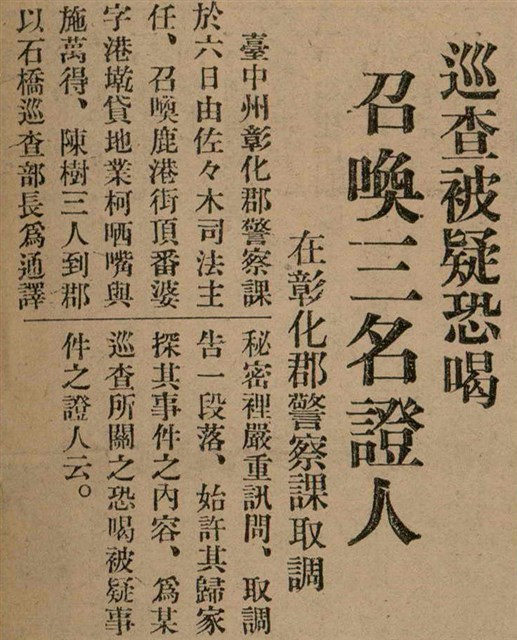 巡查被疑恐喝
召喚三名證人
在彰化郡警察課取調
臺中州彰化郡警察課
於六日由佐々木司法主
任、召喚鹿港街頂番婆
字港墘貸地業柯哂嘴與
施萬得、陳樹三人到郡
以石橋巡查部長爲通譯
秘密裡嚴重訊問、取調
告一段落、始許其歸家
探其事件之內容、爲某
巡查所關之恐喝被疑事
件之證人云。